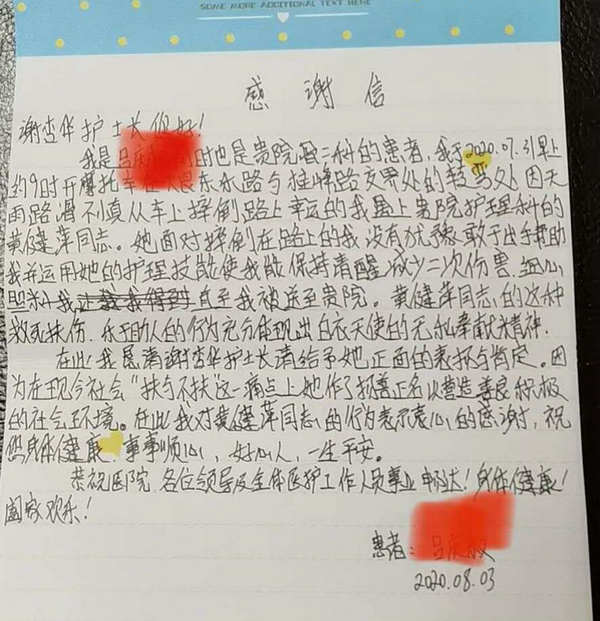 SOME MORE ADDITIONAL TEXT HERE
感谢信
谢杏华护士长你好!
我是 时也是贵院骨二科的患者,我于2020.07.31早上
约9时开摩托车在 东永路与桂畔路交界处的转弯处因天
雨路滑不慎从车上摔倒路上幸运的我遇上贵院护理科的
黄健萍同志。她面对摔倒在路上的我没有犹豫敢于出手帮助
我并运用她的护理技能使我能保持清醒减少二次伤害.细心
照料我 直至我被送至贵院。黄健萍同志的这种
救死扶伤.乐于助人的行为充分体现出白衣天使的无私奉献精神.
在此我恳请谢杏华护士长请给予她正面的表扬与肯定。因
为在现今社会“扶与不扶”这一痛点上她作了 善正名以营造善良积极
的社会环境。在此我对黄健萍同志的行为表示衷心的感谢,祝
您身体健康 事事顺心,好心人,一生平安。
恭祝医院.各位领导及全体医护工作人员事业畅达!身体健康!
阖家欢乐!
患者:
2020.08.03